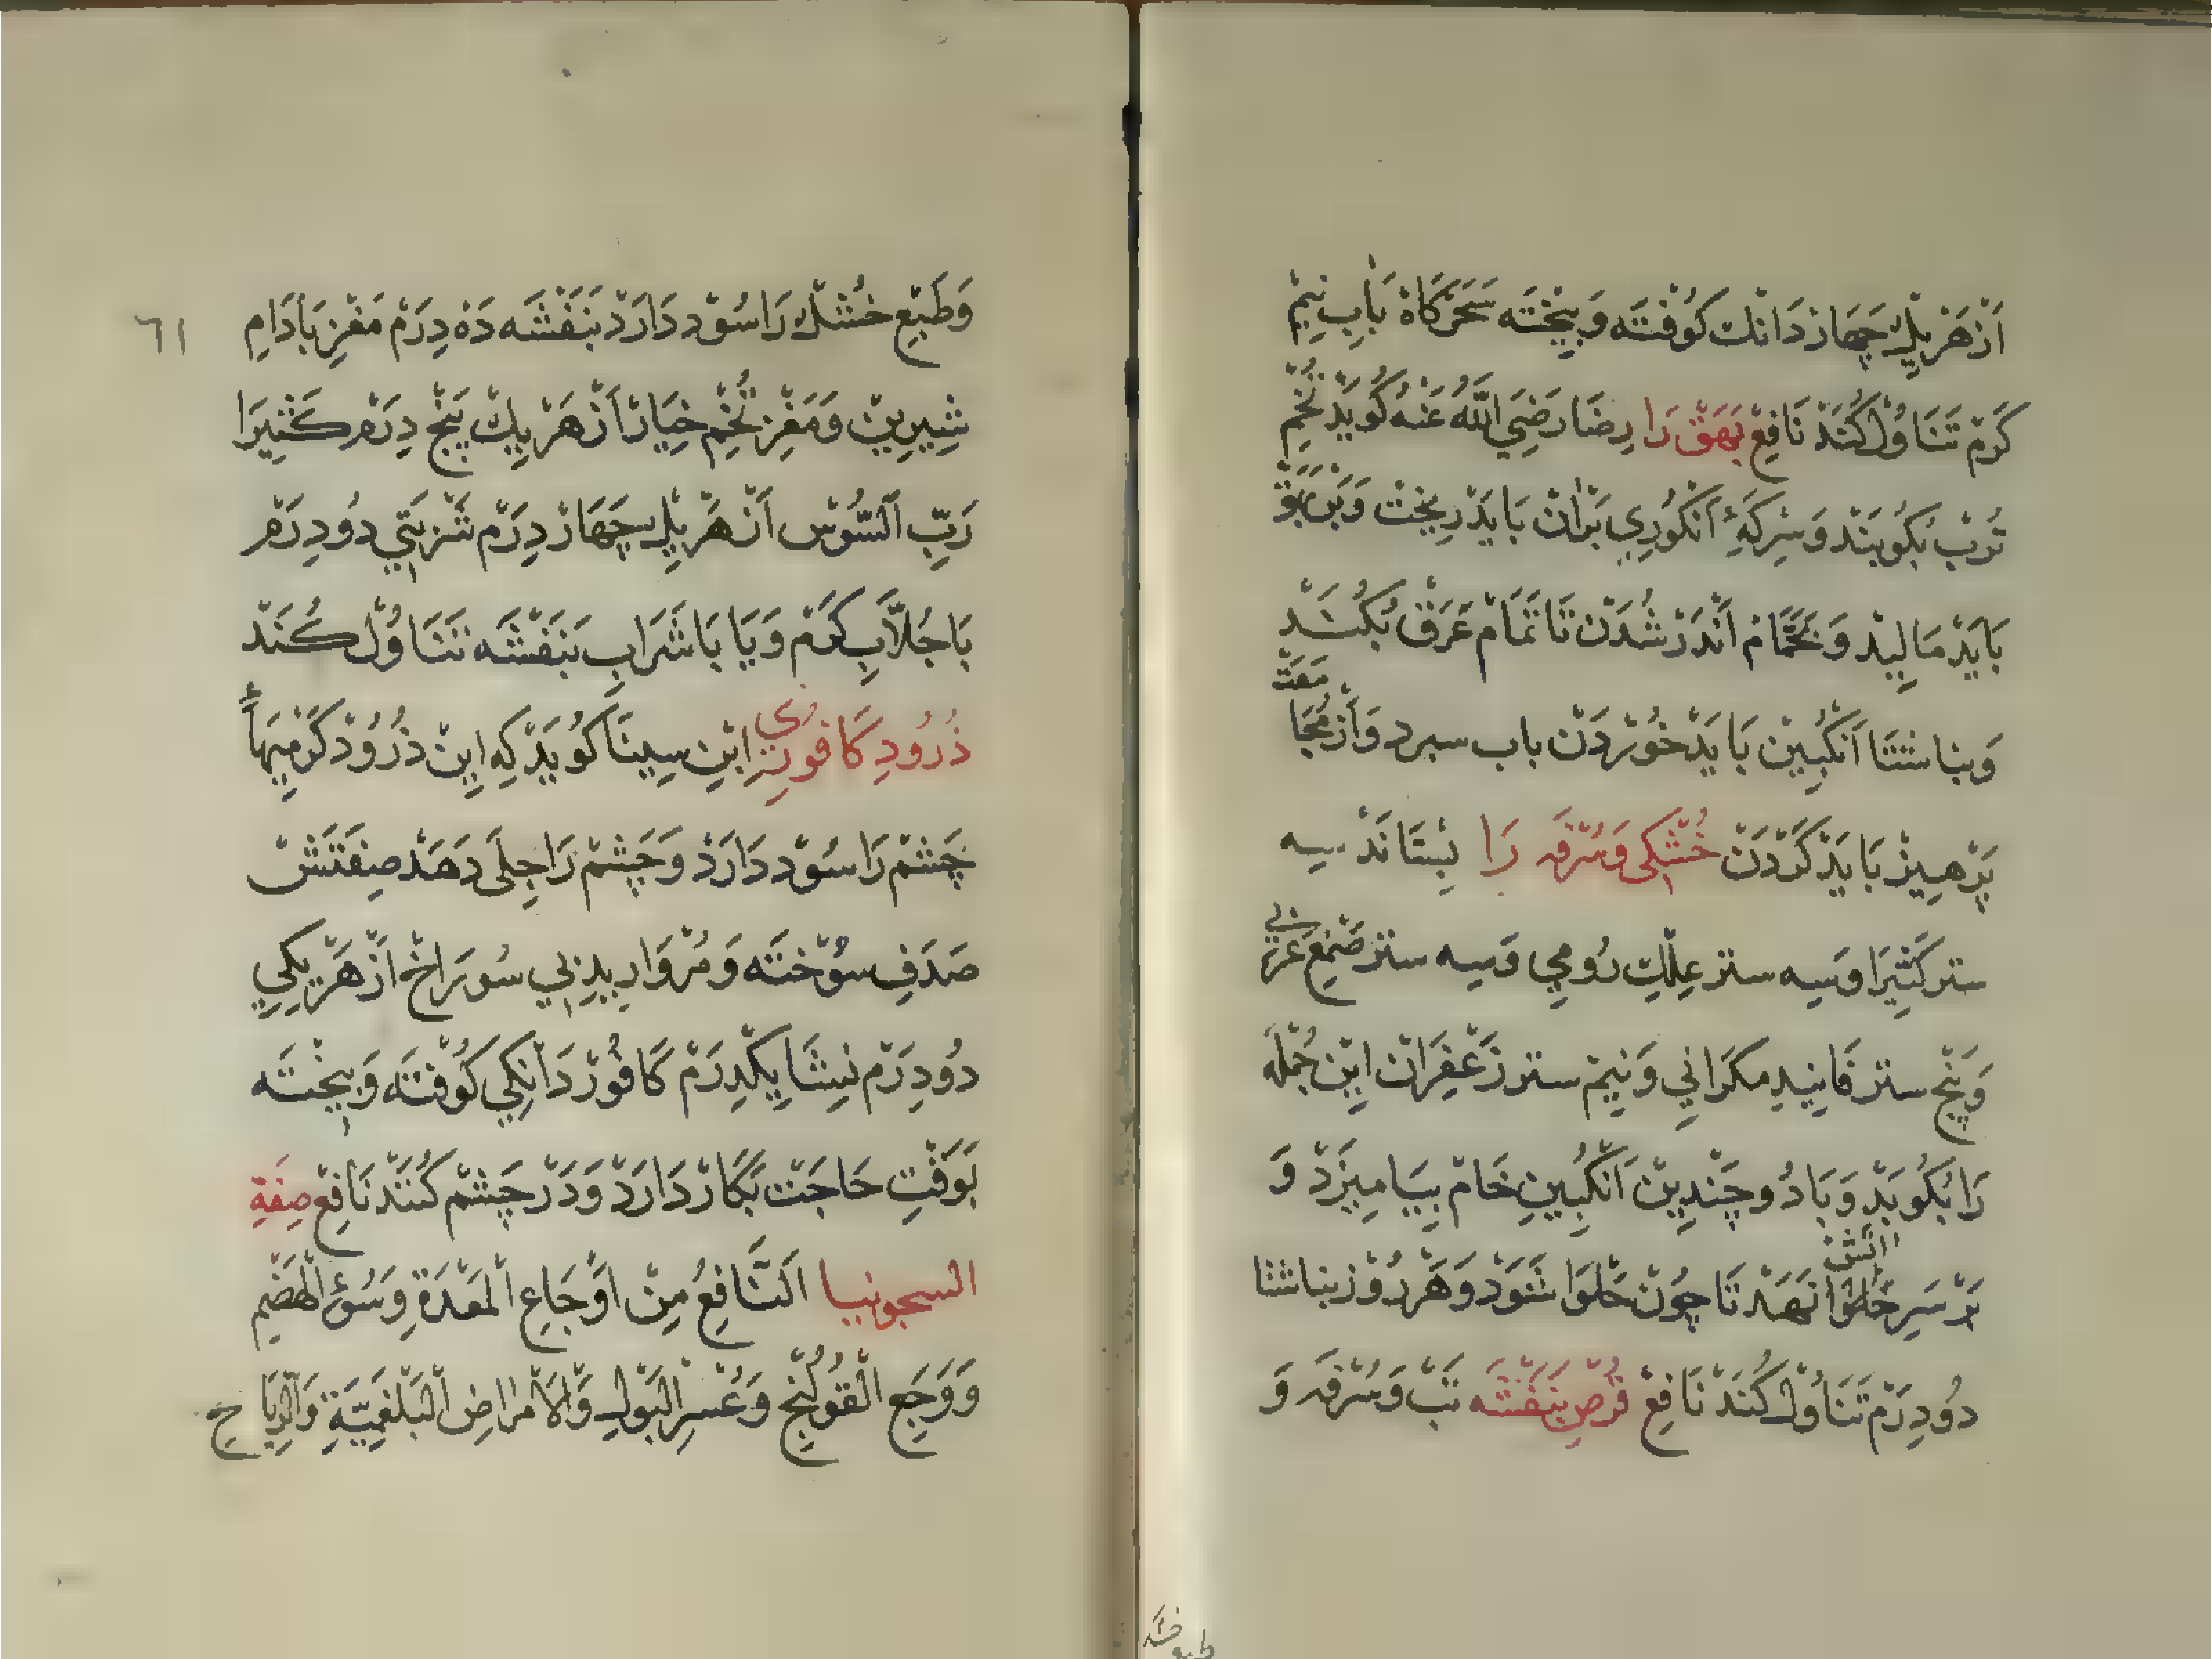 اَزْ هَرْ يِكْ چَهَارْ دَانْكْ كُوفْتَه وَ بِيخْتَه سَحَرْكَاهْ بَابِ نِيمْ
كَرَمْ تَنَاوُلْ كُنَدْ نَافِعْ بَهَقْ رَا رِضَا رَضِيَ اللّٰهُ عَنْهُ كُويَدْ تُخْمِ
تُرُبْ بُكُوبَنْد وَ سِرْكَهِٔ اَنْكُورِي بَرْانْ بَايَدْ رِيخْتْ وَ بَرْ بَهَقْ
بَايَدْ مَالِيدْ وَ بَحَمَّامْ اَنْدَرْ شُدَنْ تَا تَمَامْ عَرَقْ بُكُنَدْ
وَ بناشتَا اَنْكُبِينْ بَايَدْ خُورْدَنْ باب سرد وَ اَزْ مُجَامَعَتْ
پَرْهِيزْ بَايَدْ كَرْدَنْ خُشْكِى وَ سُرْفَه رَا بِسْتَانَدْ سِه
ستر كَثِيرَا وَ سِه ستر عِلْكِ رُومِي وَ سِه ستر صَمْغِ عَرَبِي
وَ پَنْج ستر فَانِيدِ مكرَانِي وَ نِيمْ ستر زَعْفَرَانْ اِينْ جُمْلَه
رَا بُكُوبَدْ وَ بَا دُو چَنْدِينْ اَنْكُبِينِ خَامْ بِيَامِيزَدْ وَ
بَرْ سَرِ اٰتَشْ نَهَدْ تَا چُونْ حَلْوَا شَوَدْ وَ هَرْ رُوْز بناشتا
دُو دِرَمْ تَنَاوُلْ كُنَدْ نَافِعْ قُرْصِ بَنَفْشَه تَبْ وَ سُرْفَه وَ
طبع خشك
٦١
وَ طَبْعِ خُشْكْ رَا سُوْد دَارَدْ بَنَفْشَه دَه دِرَمْ مَغْزِ بَادَامِ
شِيرِينْ وَ مَغْزِ تُخْمِ خِيَارْ اَزْ هَرْ يِكْ پَنْج دِرَمْ كَثِيرَا
رَبِّ اَلسُّوْس اَزْ هَرْ يِكْ چَهَارْ دِرَمْ شَرْبَتِي دُو دِرَمْ
بَا جُلَّابِ كَرَمْ وَ يَا بَا شَرَابِ بَنَفْشَه تَنَاوُلْ كُنَدْ
ذُرُودِ كَافُورِى اِبْنِ سِينَا كُويَدْ كِه اِينْ ذُرُودْ كَرْمِيهَاءِ
چَشْمْ رَا سُوْد دَارَدْ وَ چَشْمْ رَا جِلَى دَهَدْ صِفَتَشْ
صَدَفِ سُوْخْتَه وَ مُرْوَارِيدِ بِي سُورَاخْ اَزْ هَرْيِكِي
دُو دِرَمْ نِشَا يِكْدِرَمْ كَافُورْ دَانْكِي كُوْفْتَه وَ بِيخْتَه
بَوَقْتِ حَاجَتْ بَكَارْ دَارَدْ وَ دَرْ چَشْمْ كُنَنْد نَافِعْ صِفَةِ
السجونيا اَلنَّافِعُ مِنْ اَوْجَاعِ الْمَعْدَةِ وَ سُوْٓءِ الْهَضْمِ
وَ وَجَعِ الْقُولَنْجِ وَ عُسْرِ الْبَوْلِ وَ الْاَمْرَاضِ الْبَلْغَمِيَّةِ وَ الرِّيَاحِ